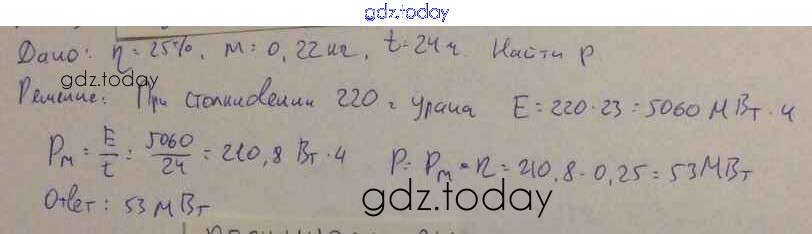 gdz.today
Дано: η = 25%. м = 0,22 кг. t = 24 ч. Найти p.
gdz.today
Решение: При столкновении 220 г урана E = 220·23 = 5060 МВт·ч
Pм = E/t = 5060/24 = 210,8 Вт·ч P = Pм · η = 210,8 · 0,25 = 53 МВт
Ответ: 53 МВт
gdz.today